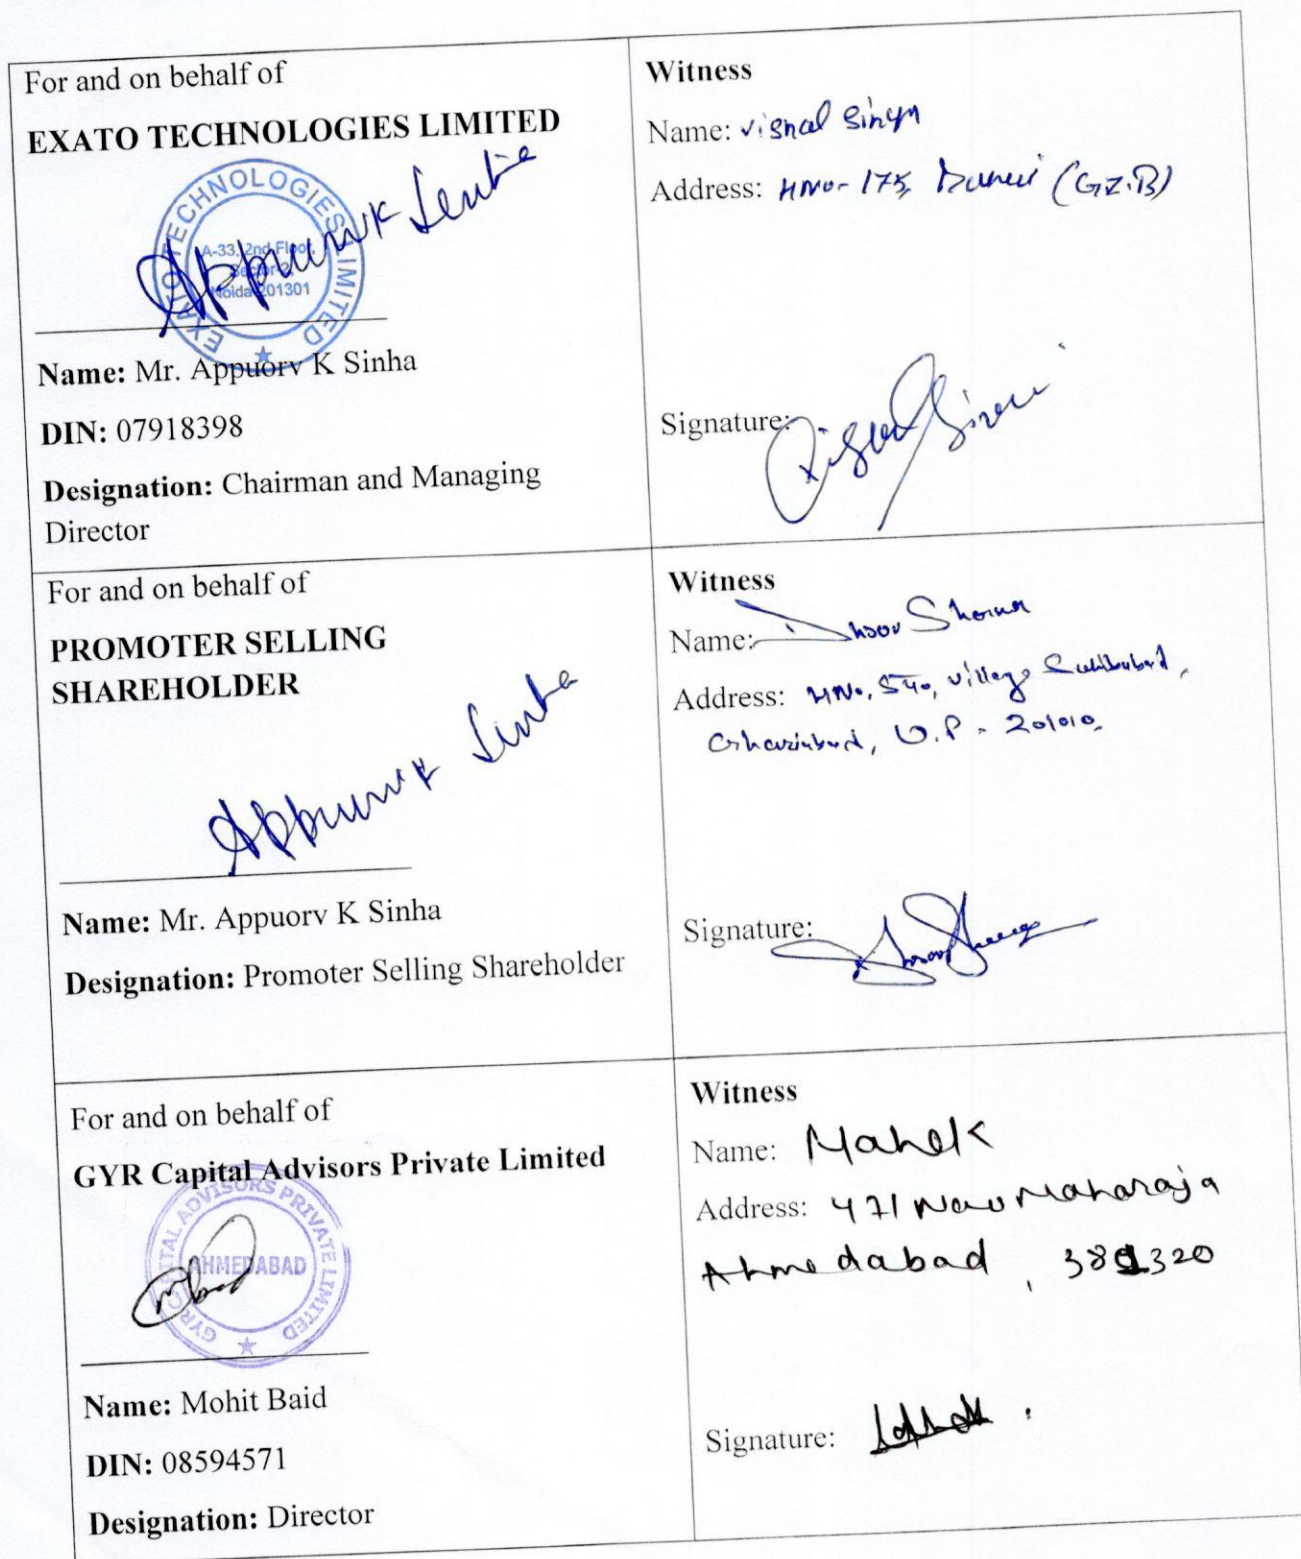 For and on behalf of
EXATO TECHNOLOGIES LIMITED
EXATO TECHNOLOGIES LIMITED
A-33, 2nd Floor,
Sector-2,
Noida 201301
Name: Mr. Appuorv K Sinha
DIN: 07918398
Designation: Chairman and Managing
Director
Witness
Name: Vishal Singh
Address: HNO-175, (GZ.B)
Signature:
For and on behalf of
PROMOTER SELLING
SHAREHOLDER
Name: Mr. Appuorv K Sinha
Designation: Promoter Selling Shareholder
Witness
Name: Sharma
Address: HNo. 540, Village Sahibabad,
Ghaziabad, U.P - 201010.
Signature:
For and on behalf of
GYR Capital Advisors Private Limited
GYR CAPITAL ADVISORS PRIVATE LIMITED
AHMEDABAD
Name: Mohit Baid
DIN: 08594571
Designation: Director
Witness
Name: Mahek
Address: 471 Nav Maharaja
Ahmedabad, 320
Signature: